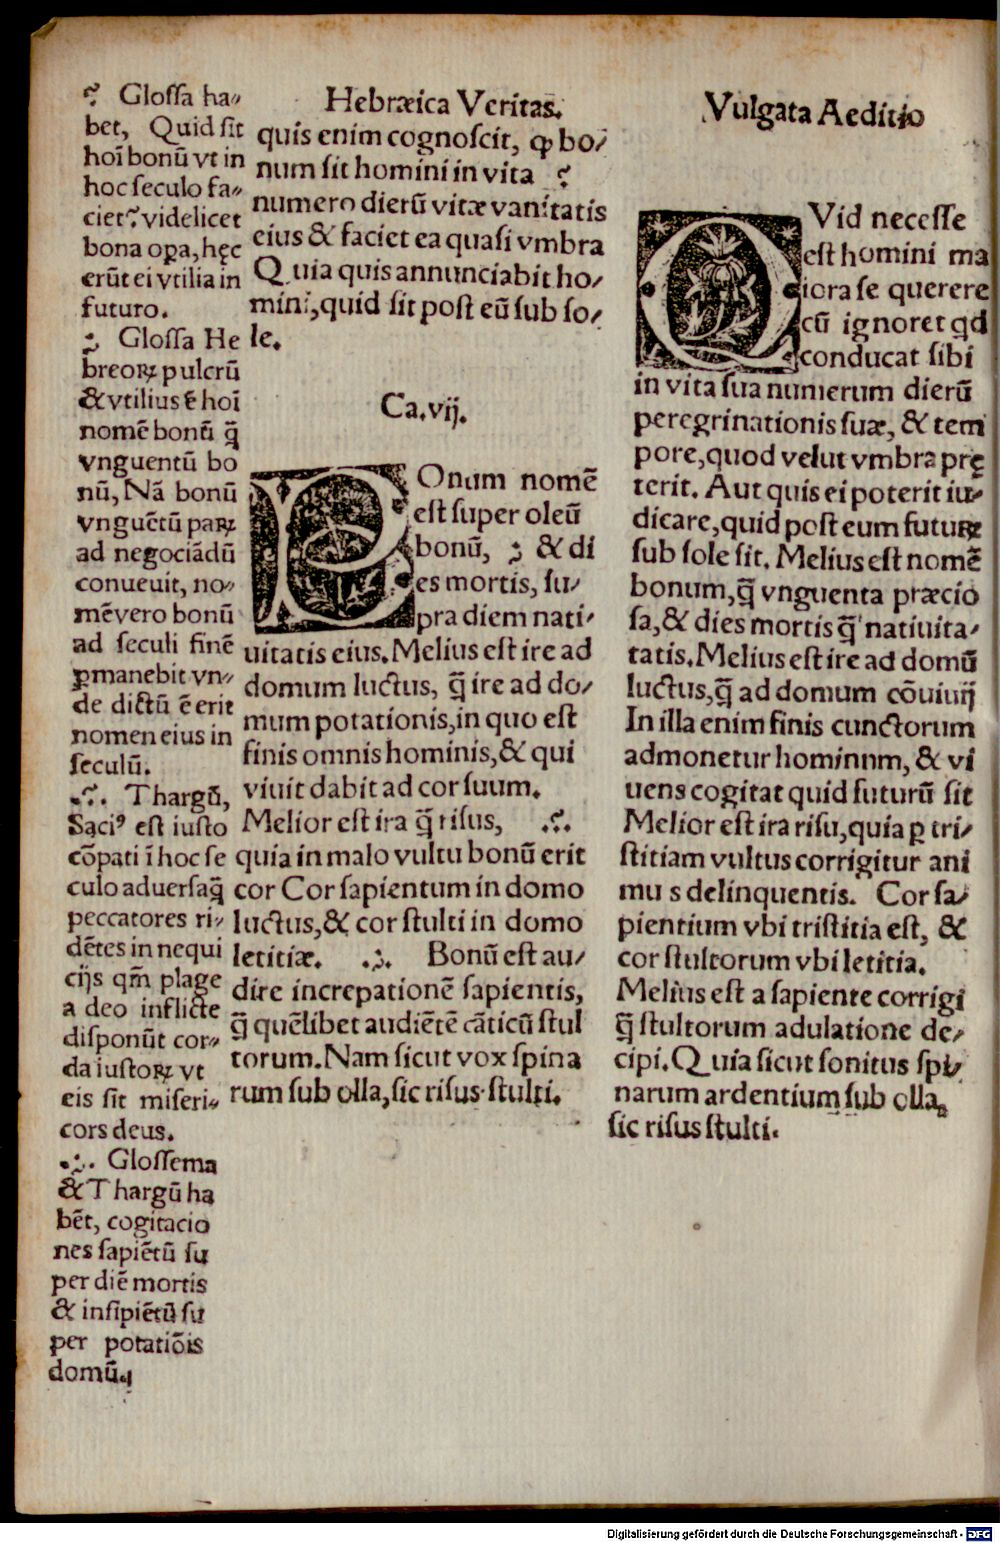 ⸮ Gloſſa ha⸗
bet, Quid ſit
hoī bonū vt in
hoc ſeculo fa⸗
ciet⸮ videlicet
bona oꝑa, hęc
erūt ei vtilia in
futuro.
Gloſſa He
breoꝝ pulcrū
& vtilius ē hoī
nomē bonū q̄̃
vnguentū bo
nū, Nā bonū
vnguētū paꝝ
ad negociādū
conueuit, no⸗
mē vero bonū
ad ſeculi finē
ꝑmanebit vn⸗
de dictū ē erit
nomen eius in
ſeculū.
.⸮. Thargū,
Sąciꝰ eſt iuſto
cōpati ī hoc ſe
culo aduerſaq̄̃
peccatores ri⸗
dētes in nequi
cijs qm̄ plage
a deo inflicte
diſponūt cor⸗
da iuſtoꝝ vt
eis ſit miſeri⸗
cors deus.
Gloſſema
& Thargū ha
bēt, cogitacio
nes ſapiētū ſu
per diē mortis
& inſipiētū ſu
per potatiōis
domū.
Hebræica Veritas.
quis enim cognoſcit, ꝙ bo⸗
num ſit homini in vita ⸮
numero dierū vitæ vanitatis
eius & faciet ea quaſi vmbra
Quia quis annunciabit ho⸗
mini, quid ſit poſt eū ſub ſo⸗
le.
Ca. vij.
BOnum nomē
eſt ſuper oleū
bonū, & di
es mortis, ſu⸗
pra diem nati⸗
uitatis eius. Melius eſt ire ad
domum luctus, q̄̃ ire ad do⸗
mum potationis, in quo eſt
finis omnis hominis, & qui
viuit dabit ad cor ſuum.
Melior eſt ira q̄̃ riſus, .⸮.
quia in malo vultu bonū erit
cor Cor ſapientum in domo
luctus, & cor ſtulti in domo
letitiæ. Bonū eſt au⸗
dire increpationē ſapientis,
q̄̃ quēlibet audiētē cāticū ſtul
torum. Nam ſicut vox ſpina
rum ſub olla, ſic riſus ſtulti.
Vulgata Aeditio
QVid neceſſe
eſt homini ma
iora ſe querere
cū ignoret qd
conducat ſibi
in vita ſua numerum dierū
peregrinationis ſuæ, & tem
pore, quod velut vmbra prę
terit. Aut quis ei poterit iu⸗
dicare, quid poſt eum futuꝝ
ſub ſole ſit. Melius eſt nomē
bonum, q̄̃ vnguenta præcio
ſa, & dies mortis q̄̃ natiuita⸗
tatis. Melius eſt ire ad domū
luctus, q̄̃ ad domum cōuiuij
In illa enim finis cunctorum
admonetur hominnm, & vi
uens cogitat quid futurū ſit
Melior eſt ira riſu, quia ꝑ tri⸗
ſtitiam vultus corrigitur ani
mu s delinquentis. Cor ſa⸗
pientium vbi triſtitia eſt, &
cor ſtultorum vbi letitia.
Melius eſt a ſapiente corrigi
q̄̃ ſtultorum adulatione de⸗
cipi. Quia ſicut ſonitus ſpi⸗
narum ardentium ſub olla,
ſic riſus ſtulti.
Digitalisierung gefördert durch die Deutsche Forschungsgemeinschaft - DFG